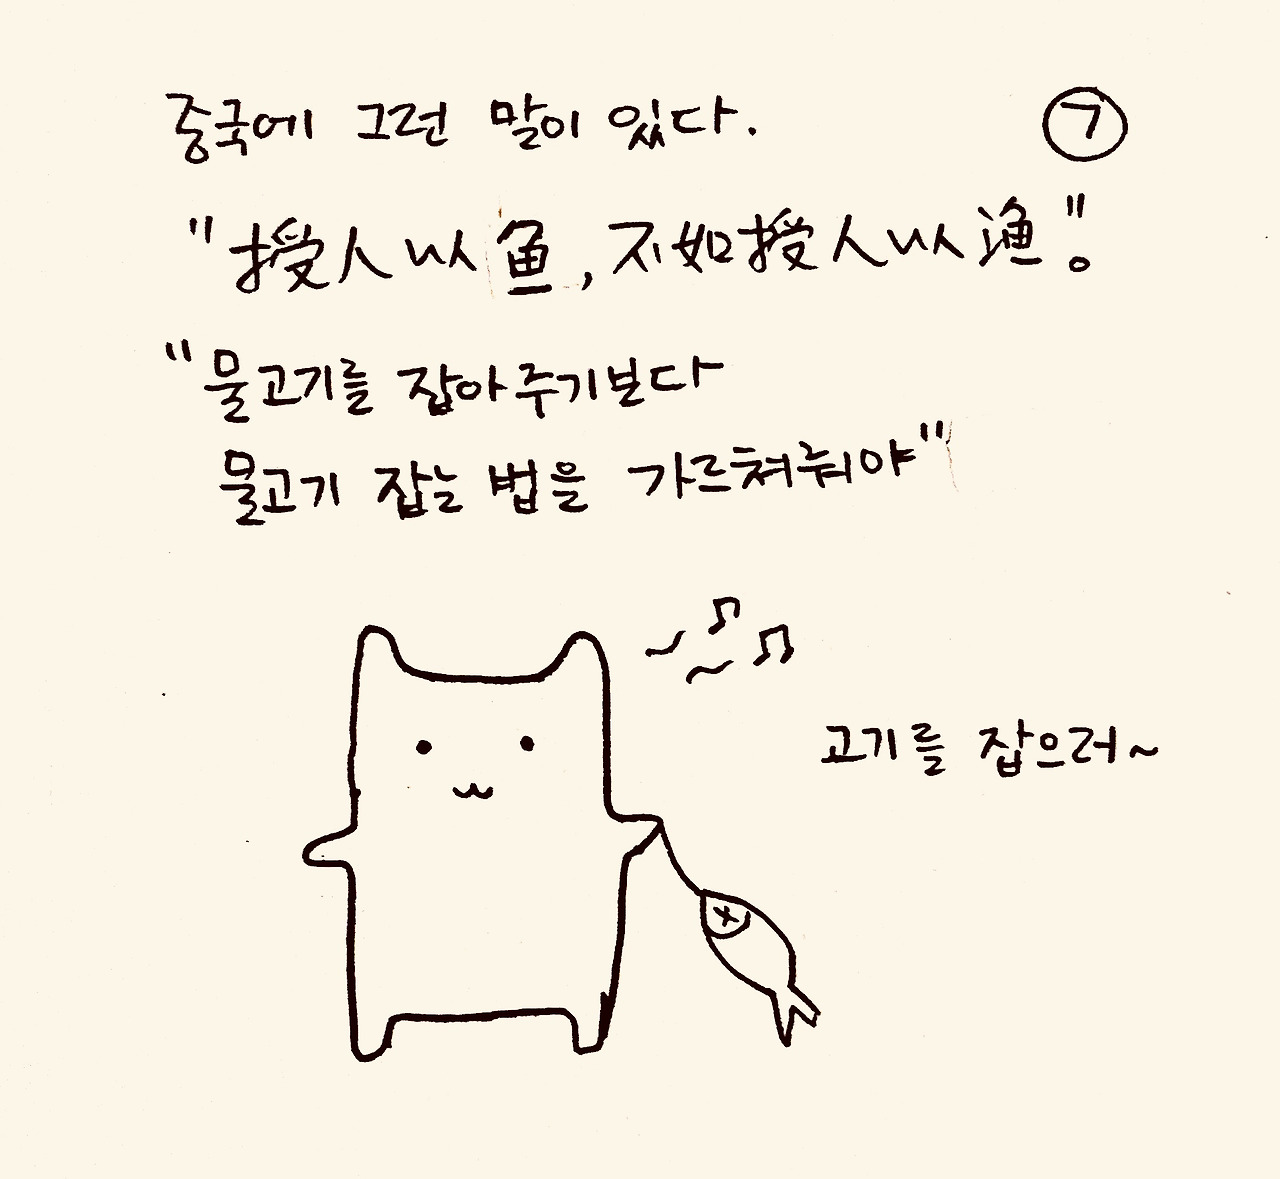 중국에 그런 말이 있다.
⑦
"授人以鱼, 不如授人以渔"。
"물고기를 잡아주기보다
물고기 잡는 법을 가르쳐줘야"
고기를 잡으러~